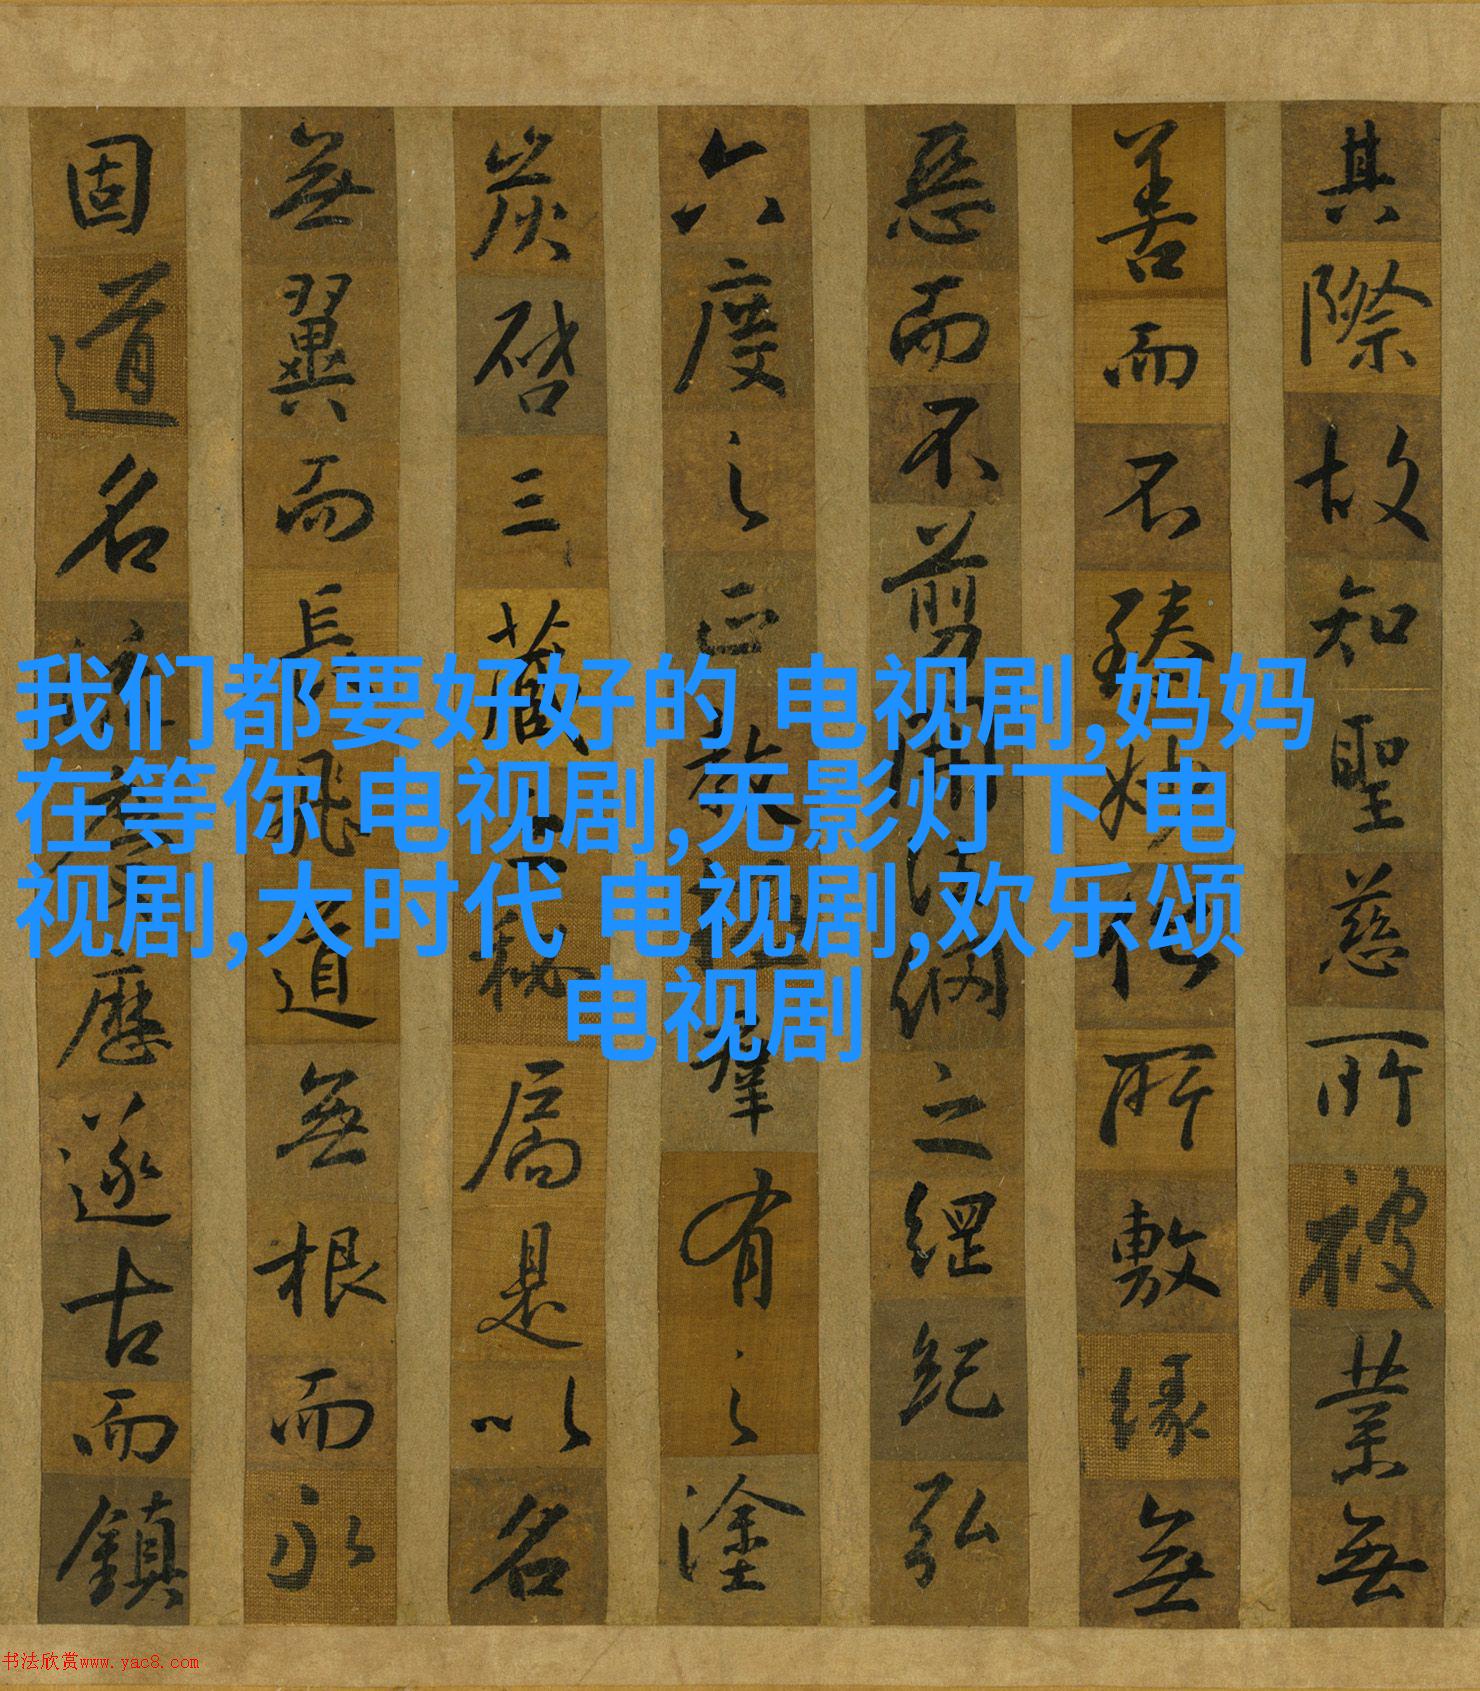 其際故知聖慈所被業無
善而不臻妙悟所敷緣無
惡而不剪開法網之綱紀弘
六度之正教拯羣有之塗
炭啓三藏之秘扃是以名
無翼而長飛道無根而永
固道名流慶歷遂古而鎮
我们都要好好的 电视剧,妈妈
在等你 电视剧,无影灯下 电
视剧,大时代 电视剧,欢乐颂
电视剧
书法欣赏www.yac8.com